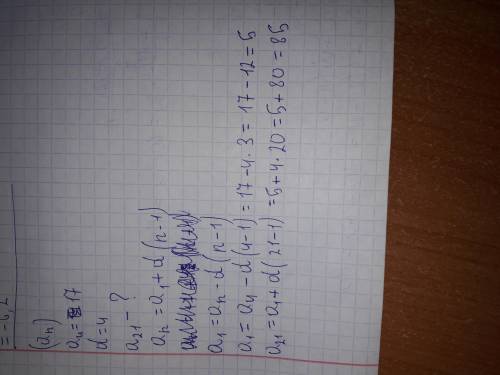 = -6,2
(aₙ)
a₄ = 17
d = 4
a₂₁ - ?
aₙ = a₁ + d (n-1)
a₁ = aₙ - d (n-1)
a₁ = a₄ - d (4-1) = 17 - 4 · 3 = 17 - 12 = 5
a₂₁ = a₁ + d (21-1) = 5 + 4 · 20 = 5 + 80 = 85